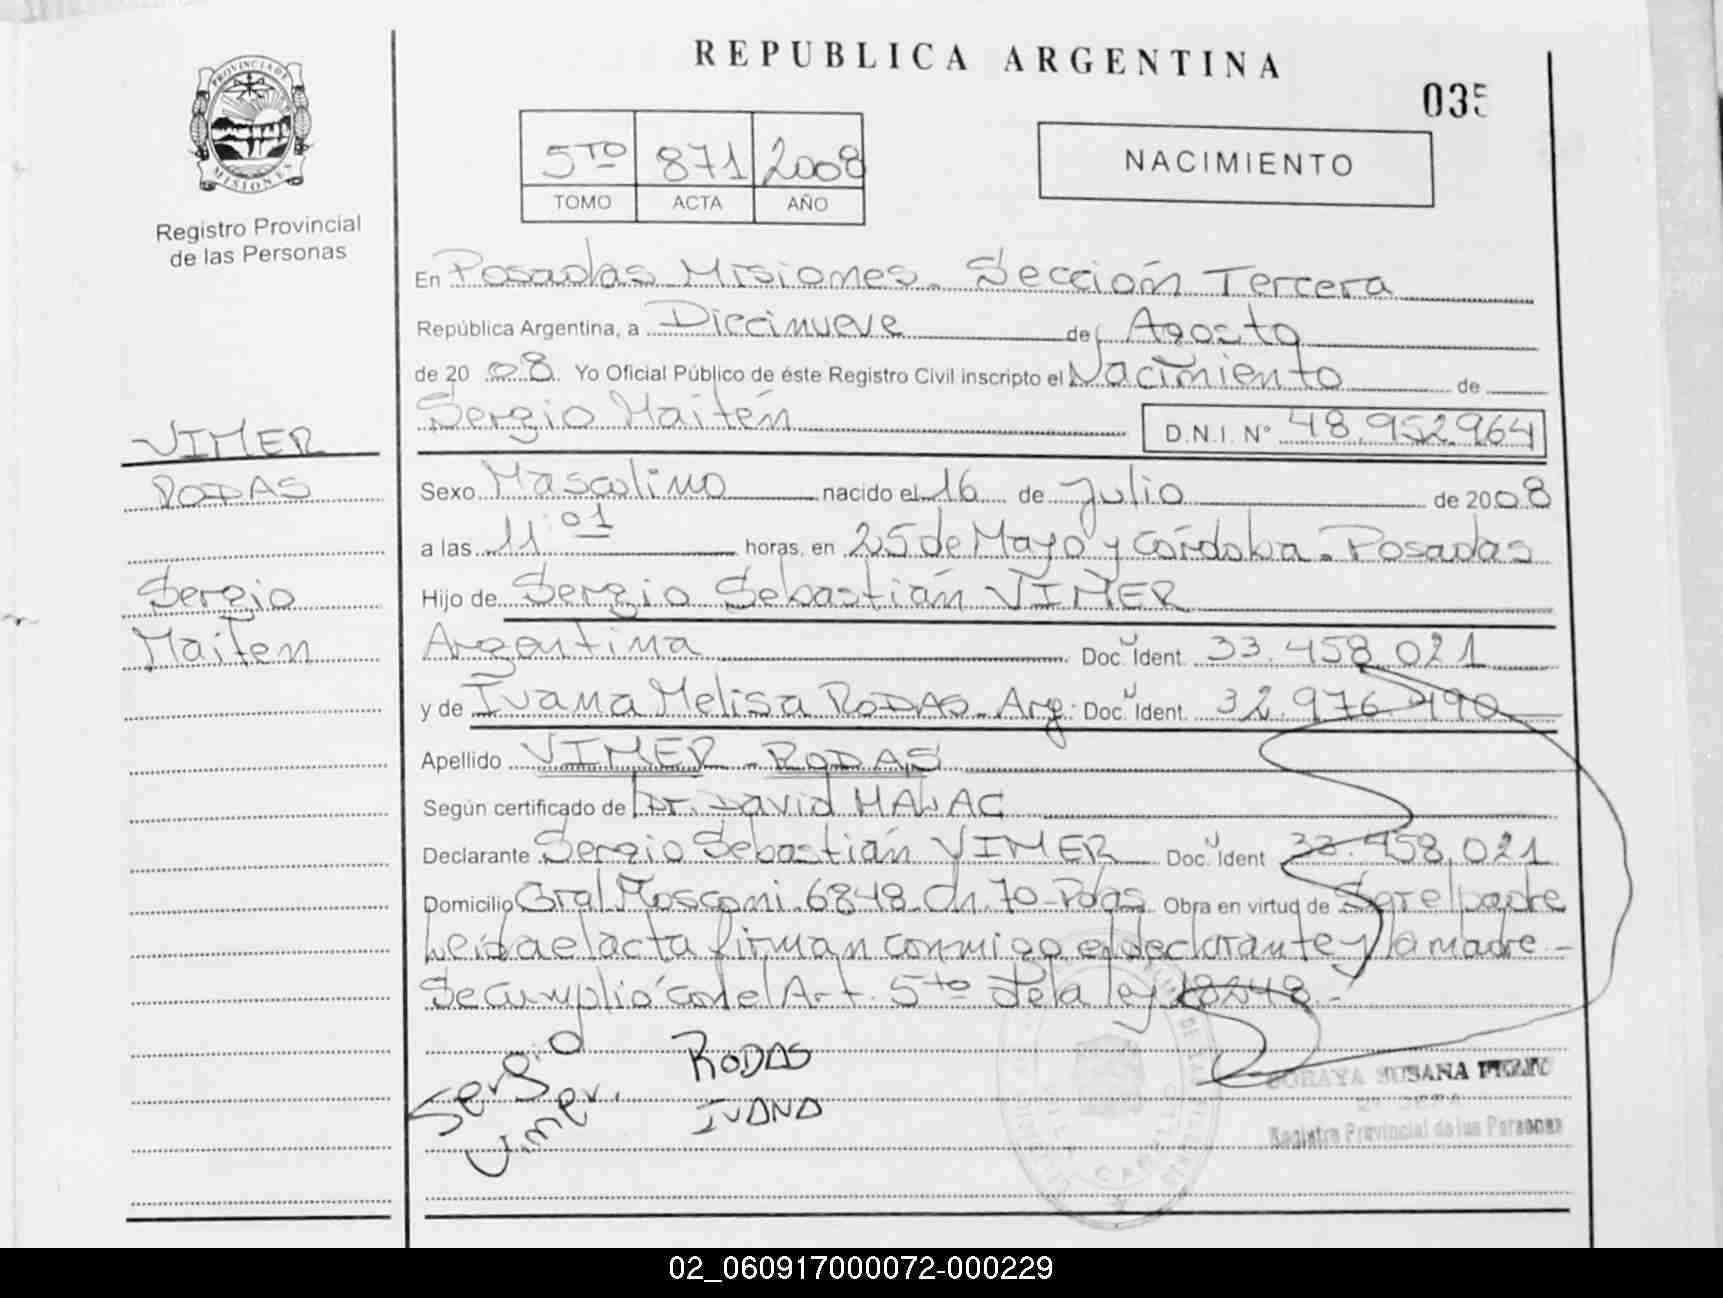 REPUBLICA ARGENTINA
035
PROVINCIA DE
MISIONES
Registro Provincial
de las Personas
5TO 871 2008
TOMO ACTA AÑO
NACIMIENTO
En Posadas Misiones. Sección Tercera
República Argentina, a Diecinueve de Agosto
de 20 08. Yo Oficial Público de éste Registro Civil inscripto el Nacimiento de
Sergio Maitén D.N.I. N° 48.952.964
VIMER
RODAS
Sergio
Maiten
Sexo Masculino nacido el 16 de Julio de 2008
a las 11 01 horas, en 25 de Mayo y Córdoba. Posadas
Hijo de Sergio Sebastián VIMER
Argentina Doc. Ident. 33.458.021
y de Ivana Melisa RODAS. Arg. Doc. Ident. 32.976.490
Apellido VIMER - RODAS
Según certificado de Dr. David
Declarante Sergio Sebastián VIMER Doc. Ident 33.458.021
Domicilio Gral Mosconi. 6848. Ch. 70 - Pdas. Obra en virtud de Ser el padre
Leida el acta firman conmigo el declarante y la madre.-
Se cumplió con el Art. 5to de la ley 18248.-
Sergio
Vimer.
RODAS
IVANA
SORAYA SUSANA
Registro Provincial de las Personas
02_060917000072-000229